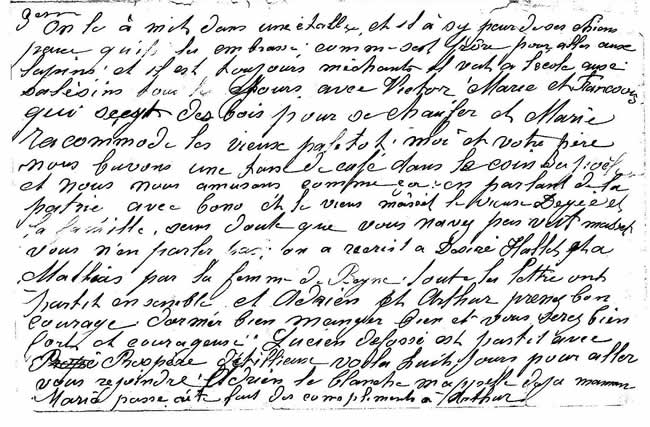 3em
On le à mit dans une étable, et il à sy peur de ses chiens
parce qu'il les embrasse comme sest frère pour aller aux
lapins; et il est toujours méchant il vat a lecole ausi
salésiens tous les jours avec Victor Marie et Francois
qui des bois pour se chaufer et Marie
racommode les vieux paletot, moi et votre père
nous buvons une tase de café dans le coin du
et nous nous amusons comme ça en parlant de la
patrie avec bono et le vieux le vieux et
la famille, sens doute que vous navez pas
vous n'en parler pas, on a recrit a Desiré Hallet, et a
Mathias par la femme de Reyne; toute les lettre ont
partit ensemble et Adrien et Arthur prenez bon
courage; dormér bien manger bien et vous serez bien
fort, et courageuse; Lucien est partit avec
Prospère voila huit jours pour aller
vous rejoindre; Adrien le blanche m'appelle deja maman
Maria passe fait des compliments à Arthur